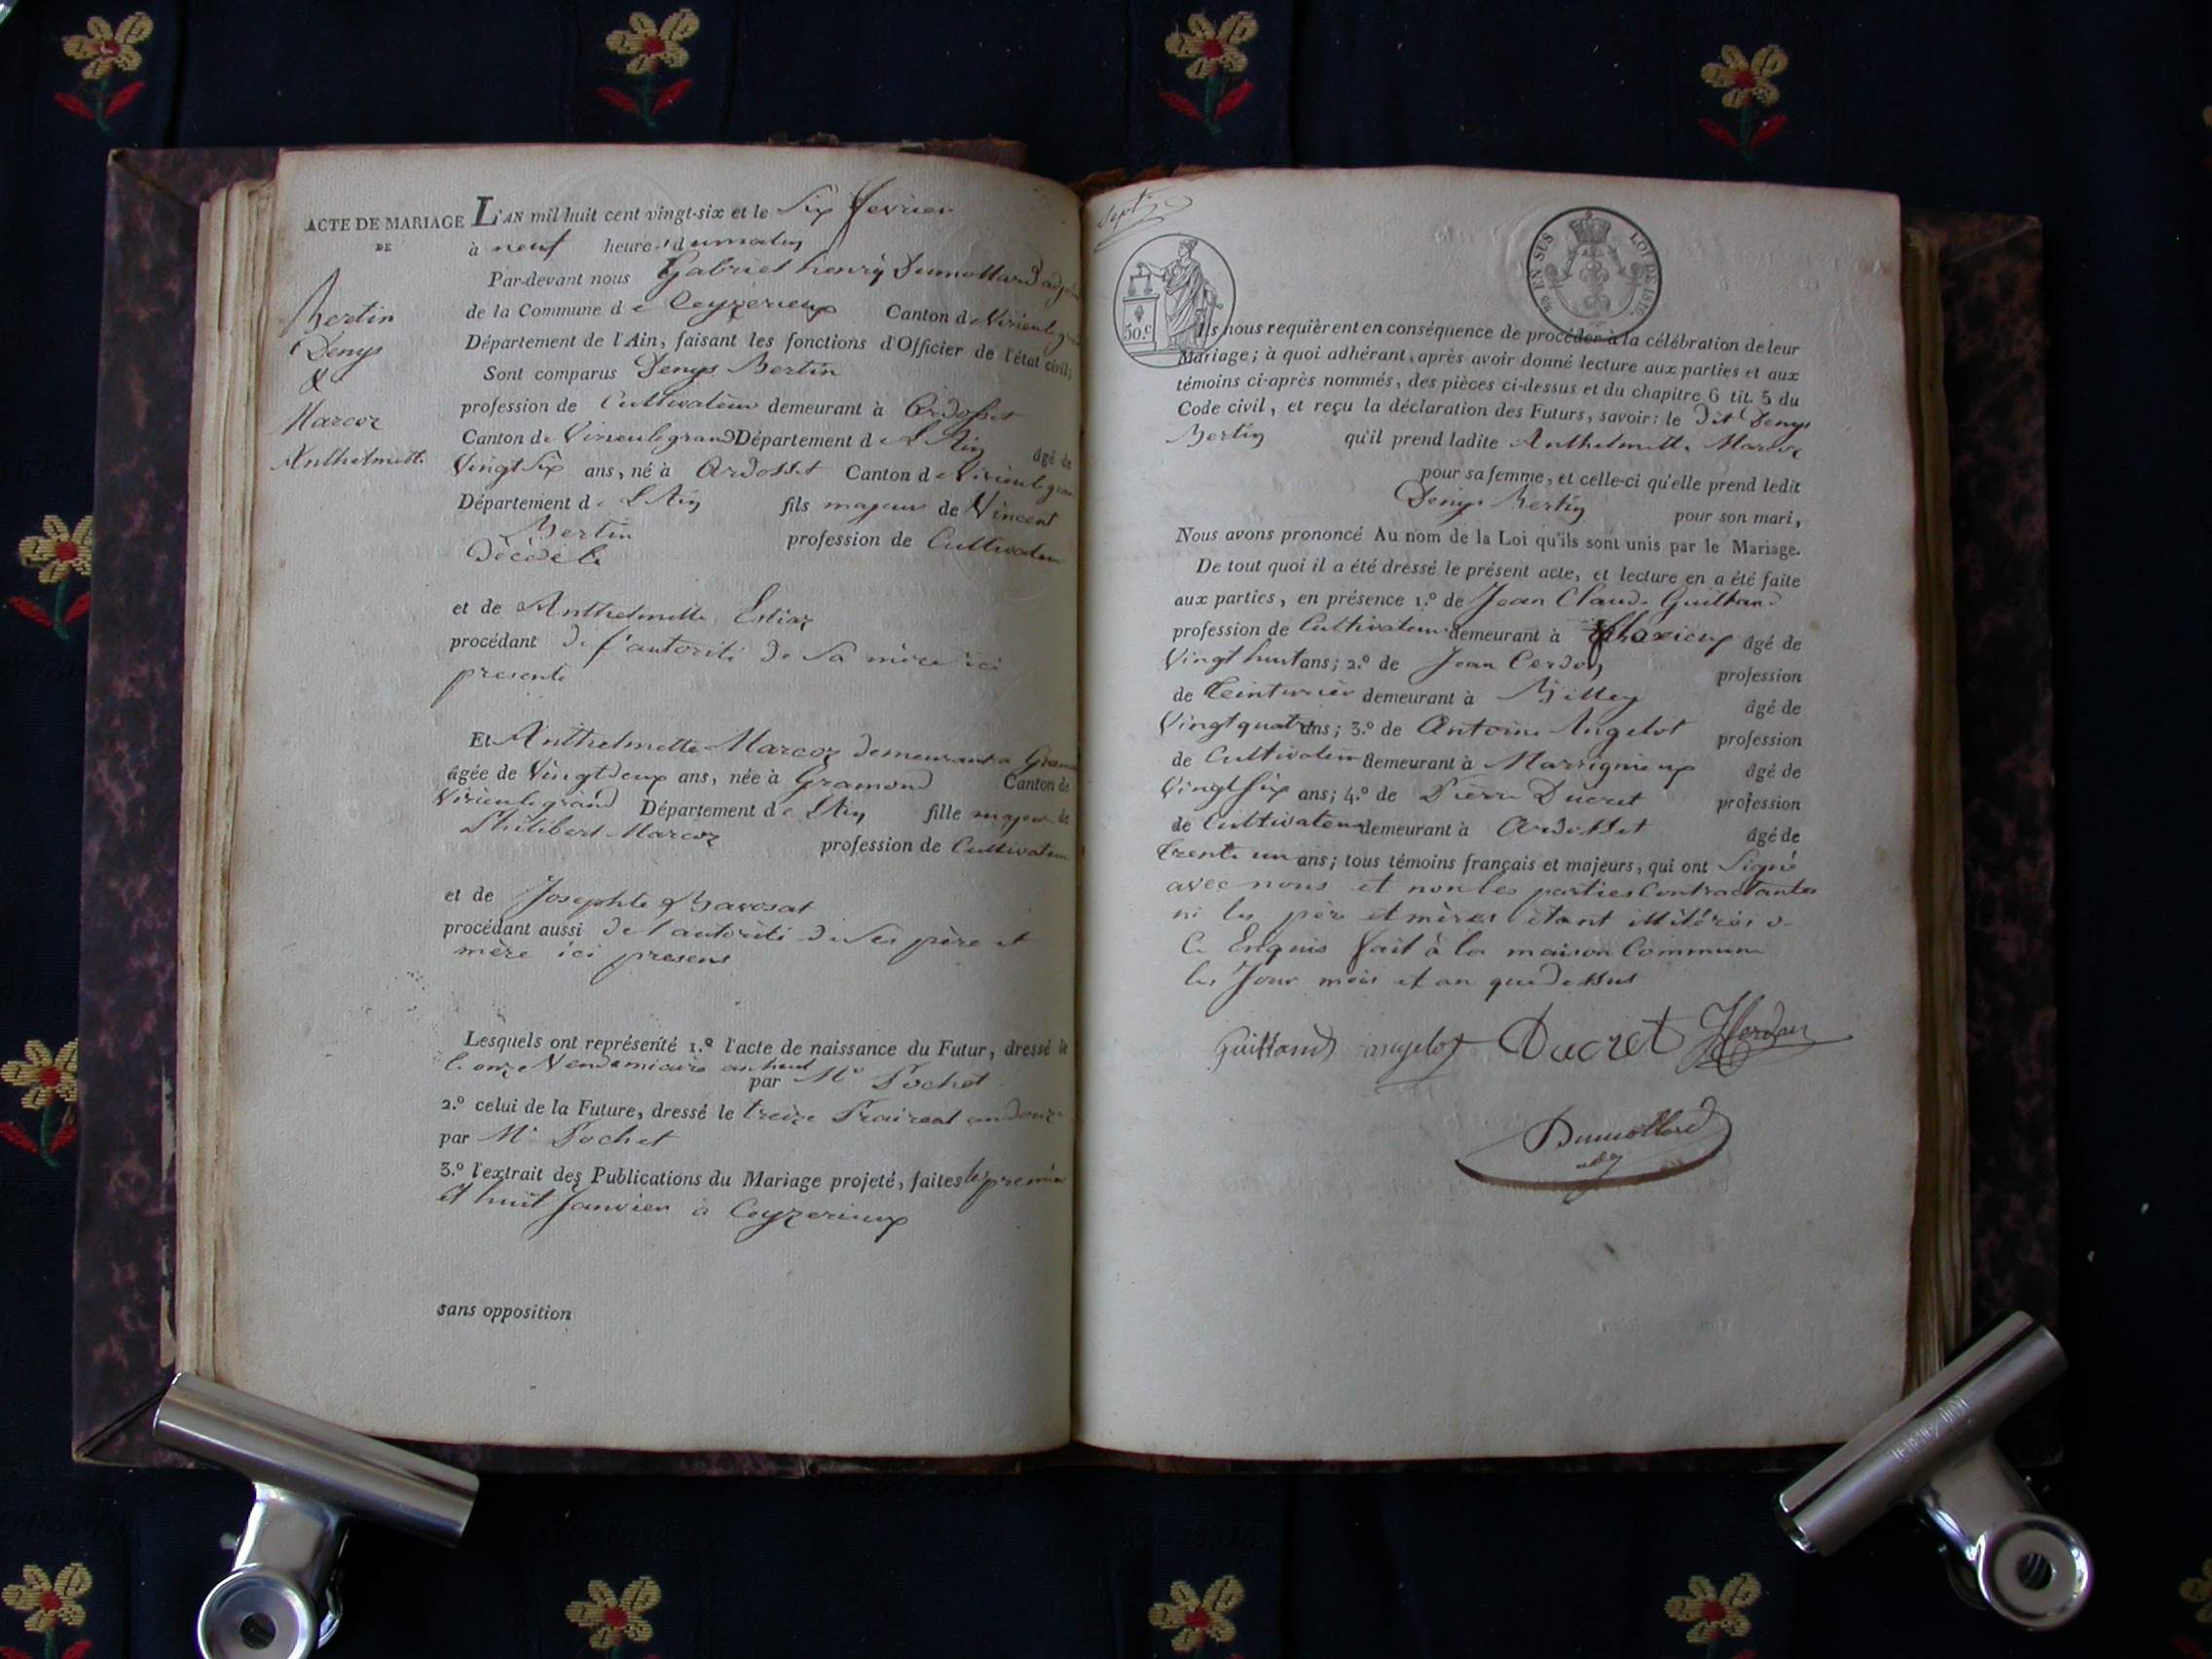 ACTE DE MARIAGE
DE
Bertin
Denys
&
Marcoz
Anthelmette
L'AN mil huit cent vingt-six et le Six fevrier
à neuf heures du matin
Par-devant nous Gabriel henry Dumollard adj
de la Commune de Ceyzerieux Canton de Virieulegrand
Département de l'Ain, faisant les fonctions d'Officier de l'état civil;
Sont comparus Denys Bertin
profession de Cultivateur demeurant à Ardosset
Canton de Virieulegrand Département de L'Ain âgé de
Vingt Six ans, né à Ardosset Canton de Virieulegrand
Département de L'Ain fils majeur de Vincent
Bertin profession de Cultivateur
Décédé
et de Anthelmette
procédant de l'autorité de Sa mère ici
presente
Et Anthelmette Marcoz demeurant a
âgée de Vingtdeux ans, née à Gramond Canton de
Virieulegrand Département de L'Ain fille majeure de
Philibert Marcoz profession de Cultivateur
et de Josephte Barosat
procédant aussi de l'autorité de Ses père et
mère ici presens
Lesquels ont représenté 1.º l'acte de naissance du Futur, dressé le
le onze Vendemiaire an huit par Mr Pochet
2.º celui de la Future, dressé le treize Praireal an douze
par Mr Pochet
3.º l'extrait des Publications du Mariage projeté, faites le premier
et huit Janvier à Ceyzerieux
sans opposition
Sept
50.c
EN SUS LOI DE 1816.
Ils nous requièrent en conséquence de procéder à la célébration de leur
Mariage; à quoi adhérant, après avoir donné lecture aux parties et aux
témoins ci-après nommés, des pièces ci-dessus et du chapitre 6 tit. 5 du
Code civil, et reçu la déclaration des Futurs, savoir: le dit Denys
Bertin qu'il prend ladite Anthelmette Marcoz
pour sa femme, et celle-ci qu'elle prend ledit
Denys Bertin pour son mari,
Nous avons prononcé Au nom de la Loi qu'ils sont unis par le Mariage.
De tout quoi il a été dressé le présent acte, et lecture en a été faite
aux parties, en présence 1.º de Jean Claude Guilland
profession de Cultivateur demeurant à Flaxieux âgé de
Vingt huit ans; 2.º de Jean Cerdon profession
de teinturier demeurant à Billey âgé de
Vingt quatre ans; 3.º de Antoine Angelot profession
de Cultivateur demeurant à Marignieux âgé de
Vingt Six ans; 4.º de Pierre Ducret profession
de Cultivateur demeurant à Ardosset âgé de
trente un ans; tous témoins français et majeurs, qui ont Signé
avec nous et non les parties Contractantes
ni les père et mères étant illitérés de
Ce Enquis fait à la maison Commune
les Jour mois et an que dessus
Guilland angelot Ducret
Dumollard
adj